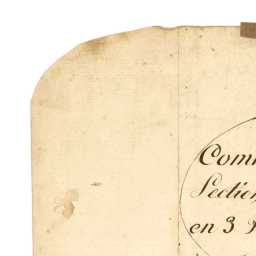 Comm
Section
en 3